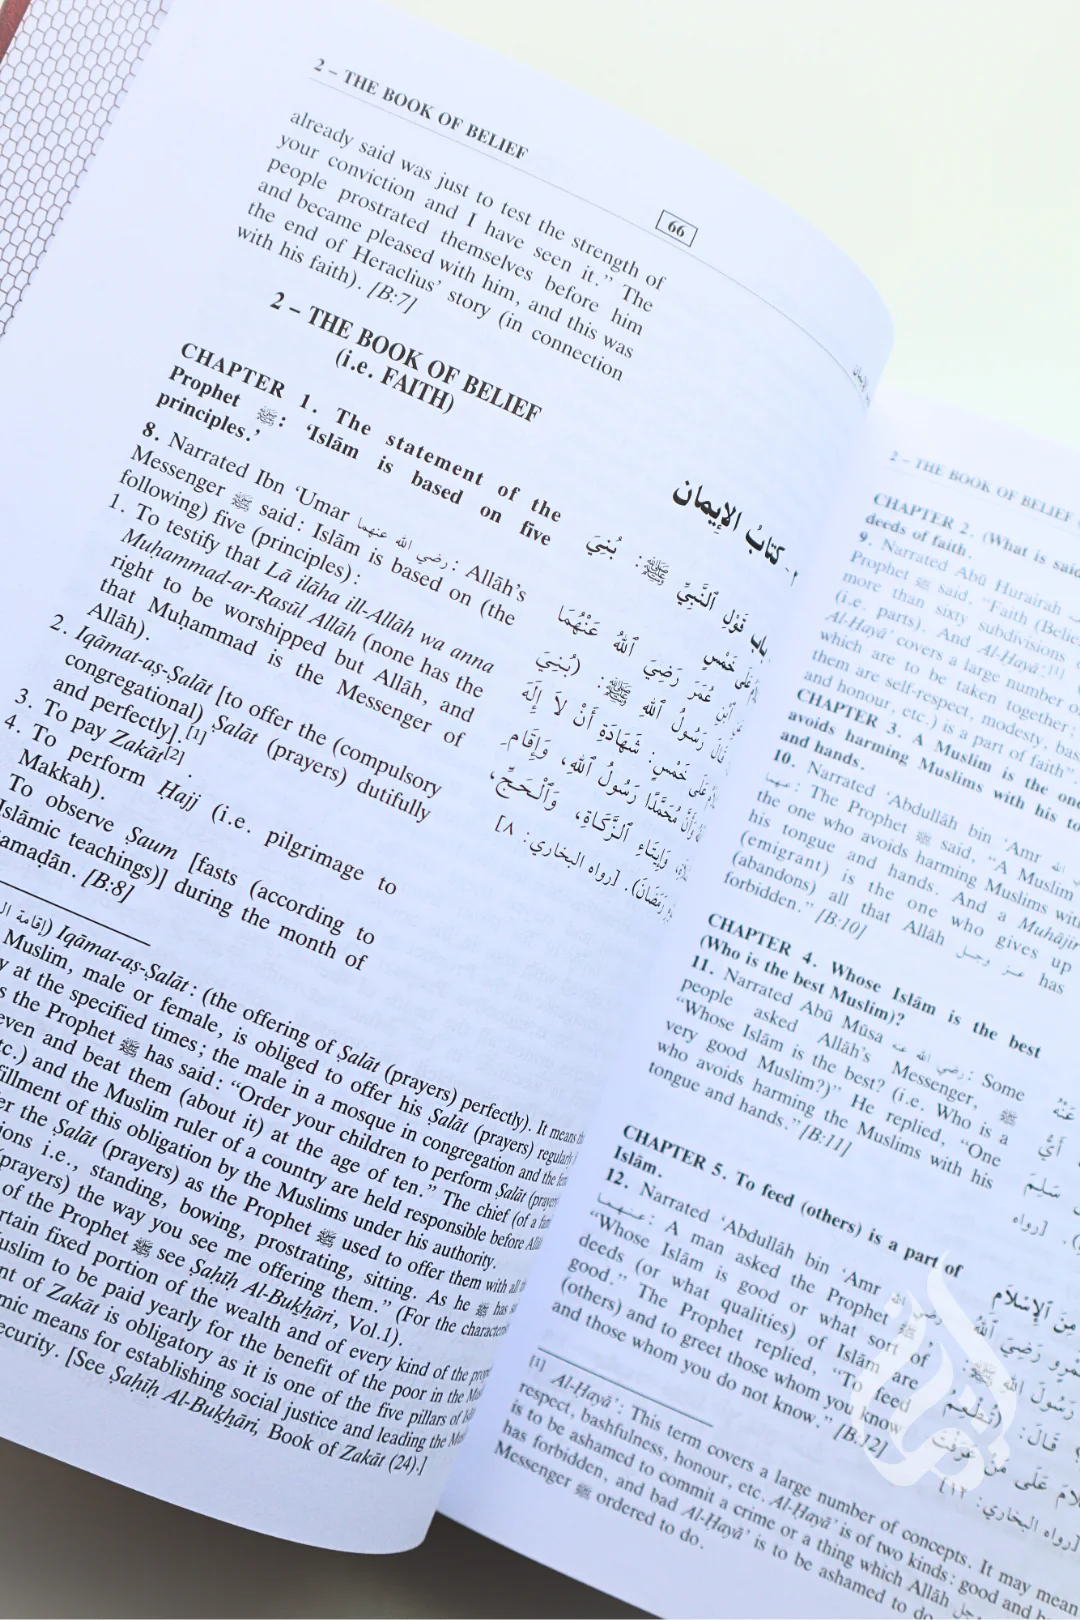 2 – THE BOOK OF BELIEF
66
already said was just to test the strength of
your conviction and I have seen it.” The
people prostrated themselves before him
and became pleased with him, and this was
the end of Heraclius’ story (in connection
with his faith). [B:7]
2 – THE BOOK OF BELIEF
(i.e. FAITH)
CHAPTER 1. The statement of the
Prophet ﷺ: ‘Islām is based on five
principles.’
8. Narrated Ibn ‘Umar رضي الله عنهما: Allāh’s
Messenger ﷺ said: Islām is based on (the
following) five (principles):
1. To testify that Lā ilāha ill-Allāh wa anna
Muhammad-ar-Rasūl Allāh (none has the
right to be worshipped but Allāh, and
that Muḥammad is the Messenger of
Allāh).
2. Iqāmat-aṣ-Ṣalāt [to offer the (compulsory
congregational) Ṣalāt (prayers) dutifully
and perfectly].[1]
3. To pay Zakāt[2].
4. To perform Ḥajj (i.e. pilgrimage to
Makkah).
To observe Ṣaum [fasts (according to
Islāmic teachings)] during the month of
[B:8]
كتابُ الإِيمان
باب قَوْلِ ٱلنَّبِيِّ ﷺ: بُنِيَ
عَلَى خَمْسٍ
ٱبْنِ عُمَرَ رَضِيَ ٱللهُ عَنْهُمَا
قَالَ رَسُولُ ٱللهِ ﷺ: (بُنِيَ
عَلَى خَمْسٍ: شَهَادَةِ أَنْ لاَ إِلَهَ
وَأَنَّ مُحَمَّدًا رَسُولُ ٱللهِ، وَإِقَامِ
وَإِيتَاءِ ٱلزَّكَاةِ، وَٱلْحَجِّ،
رَمَضَانَ). [رواه البخاري: ٨]
(إقامة Iqāmat-aṣ-Ṣalāt: (the offering of Ṣalāt (prayers) perfectly). It means
Muslim, male or female, is obliged to offer his Ṣalāt (prayers) regularly
at the specified times; the male in a mosque in congregation and the
the Prophet ﷺ has said: “Order your children to perform Ṣalāt
even and beat them (about it) at the age of ten.” The chief (of a
and the Muslim ruler of a country are held responsible before
of this obligation by the Muslims under his authority.
the Ṣalāt (prayers) as the Prophet ﷺ used to offer them with
i.e., standing, bowing, prostrating, sitting. As he ﷺ
(prayers) the way you see me offering them.” (For the
of the Prophet ﷺ see Ṣaḥīḥ Al-Bukhāri, Vol.1).
fixed portion of the wealth and of every kind of the
to be paid yearly for the benefit of the poor in the
of Zakāt is obligatory as it is one of the five pillars of
means for establishing social justice and leading the
[See Ṣaḥīḥ Al-Bukhāri, Book of Zakāt (24).]
2 – THE BOOK OF BELIEF
CHAPTER 2. (What is said
deeds of faith.
9. Narrated Abū Hurairah
Prophet ﷺ said, “Faith
more than sixty subdivisions
(i.e. parts). And Al-Ḥayā’[1]
Al-Ḥayā’ covers a large number
which are to be taken together;
them are self-respect, modesty,
and honour, etc.) is a part of faith”.
CHAPTER 3. A Muslim is the one
avoids harming Muslims with his
and hands.
10. Narrated ‘Abdullāh bin ‘Amr
عنهما: The Prophet ﷺ said, “A Muslim
the one who avoids harming Muslims with
his tongue and hands. And a Muhājir
(emigrant) is the one who gives up
(abandons) all that Allāh عز وجل has
forbidden.” [B:10]
CHAPTER 4. Whose Islām is the best
(Who is the best Muslim)?
11. Narrated Abū Mūsa رضي الله عنه: Some
people asked Allāh’s Messenger, ﷺ
“Whose Islām is the best? (i.e. Who is a
very good Muslim?)” He replied, “One
who avoids harming the Muslims with his
tongue and hands.” [B:11]
CHAPTER 5. To feed (others) is a part of
Islām.
12. Narrated ‘Abdullāh bin ‘Amr رضي الله
عنهما: A man asked the Prophet ﷺ,
“Whose Islām is good or what sort of
deeds (or what qualities) of Islām are
good.” The Prophet replied, “To feed
(others) and to greet those whom you know
and those whom you do not know.” [B:12]
عَنْهُ
أَيُّ
سَلِمَ
[رواه
مِنَ ٱلإِسْلاَمِ
رَضِيَ ٱللهُ
رَسُولَ ٱللهِ ﷺ
قَالَ: (تُطْعِمُ
عَلَى مَنْ عَرَفْتَ
[رواه البخاري: ١٢]
[1] Al-Ḥayā’: This term covers a large number of concepts. It may mean
respect, bashfulness, honour, etc. Al-Ḥayā’ is of two kinds: good and
is to be ashamed to commit a crime or a thing which Allāh
has forbidden, and bad Al-Ḥayā’ is to be ashamed to do
Messenger ﷺ ordered to do.